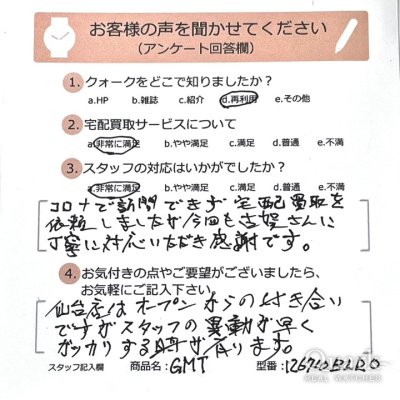 お客様の声を聞かせてください
(アンケート回答欄)
1. クォークをどこで知りましたか?
a.HP b.雑誌 c.紹介 d.再利用 e.その他
2. 宅配買取サービスについて
a.非常に満足 b.やや満足 c.満足 d.普通 e.不満
3. スタッフの対応はいかがでしたか?
a.非常に満足 b.やや満足 c.満足 d.普通 e.不満
コロナで訪問できず宅配買取を
依頼しましたが今回も さんに
丁寧に対応いただき感謝です。
4. お気付きの点やご要望がございましたら、
お気軽にご記入下さい。
仙台店はオープンからの付き合い
ですがスタッフの異動が早く
ガッカリする時が有ります。
スタッフ記入欄 商品名: GMT 型番: 126710BLRO
REAL WATCHES